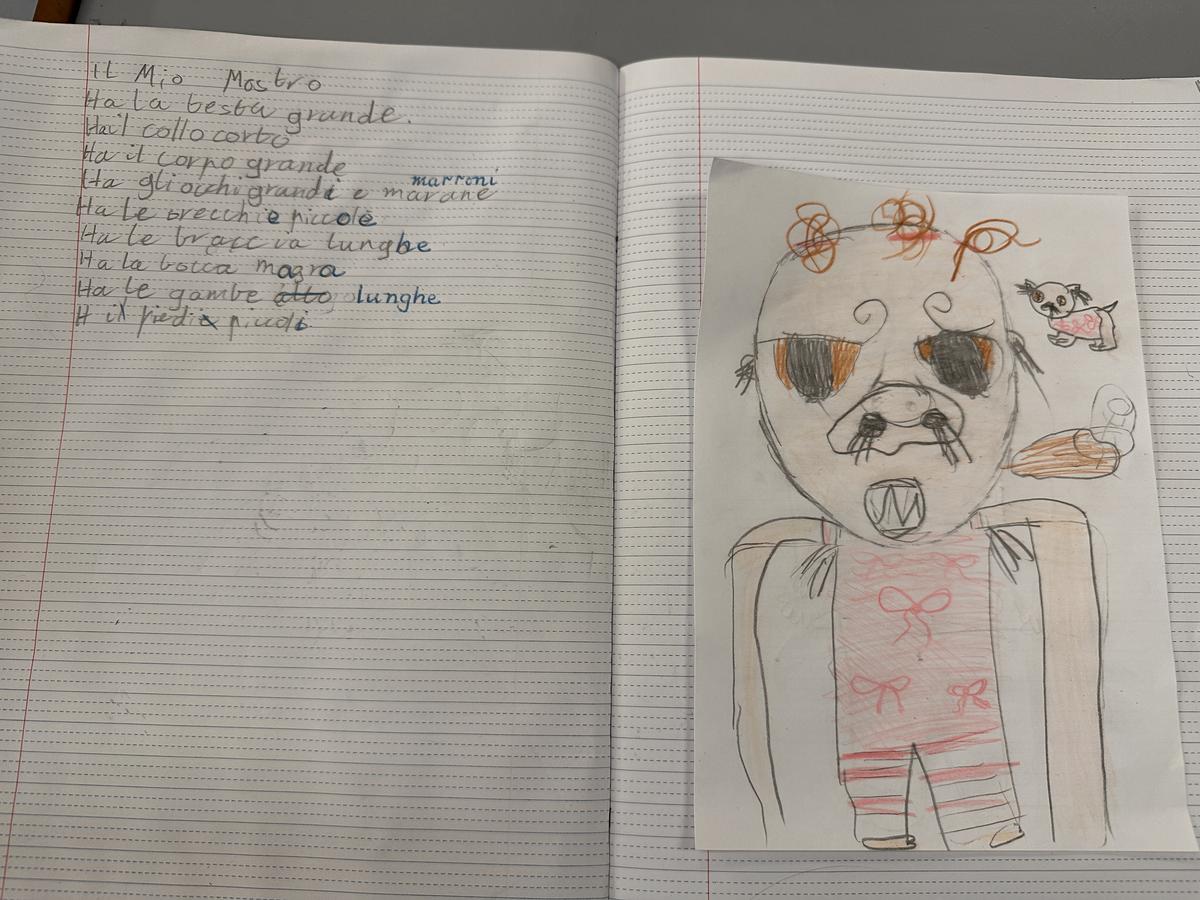 IL Mio Mostro
Ha la testa grande.
Ha il collo corto
Ha il corpo grande
marroni
Ha gli occhi grandi e marane
Ha le orecchie piccole
Ha le braccia lunghe
Ha la bocca magra
Ha le gambe alto lunghe
H il piedi piccoli